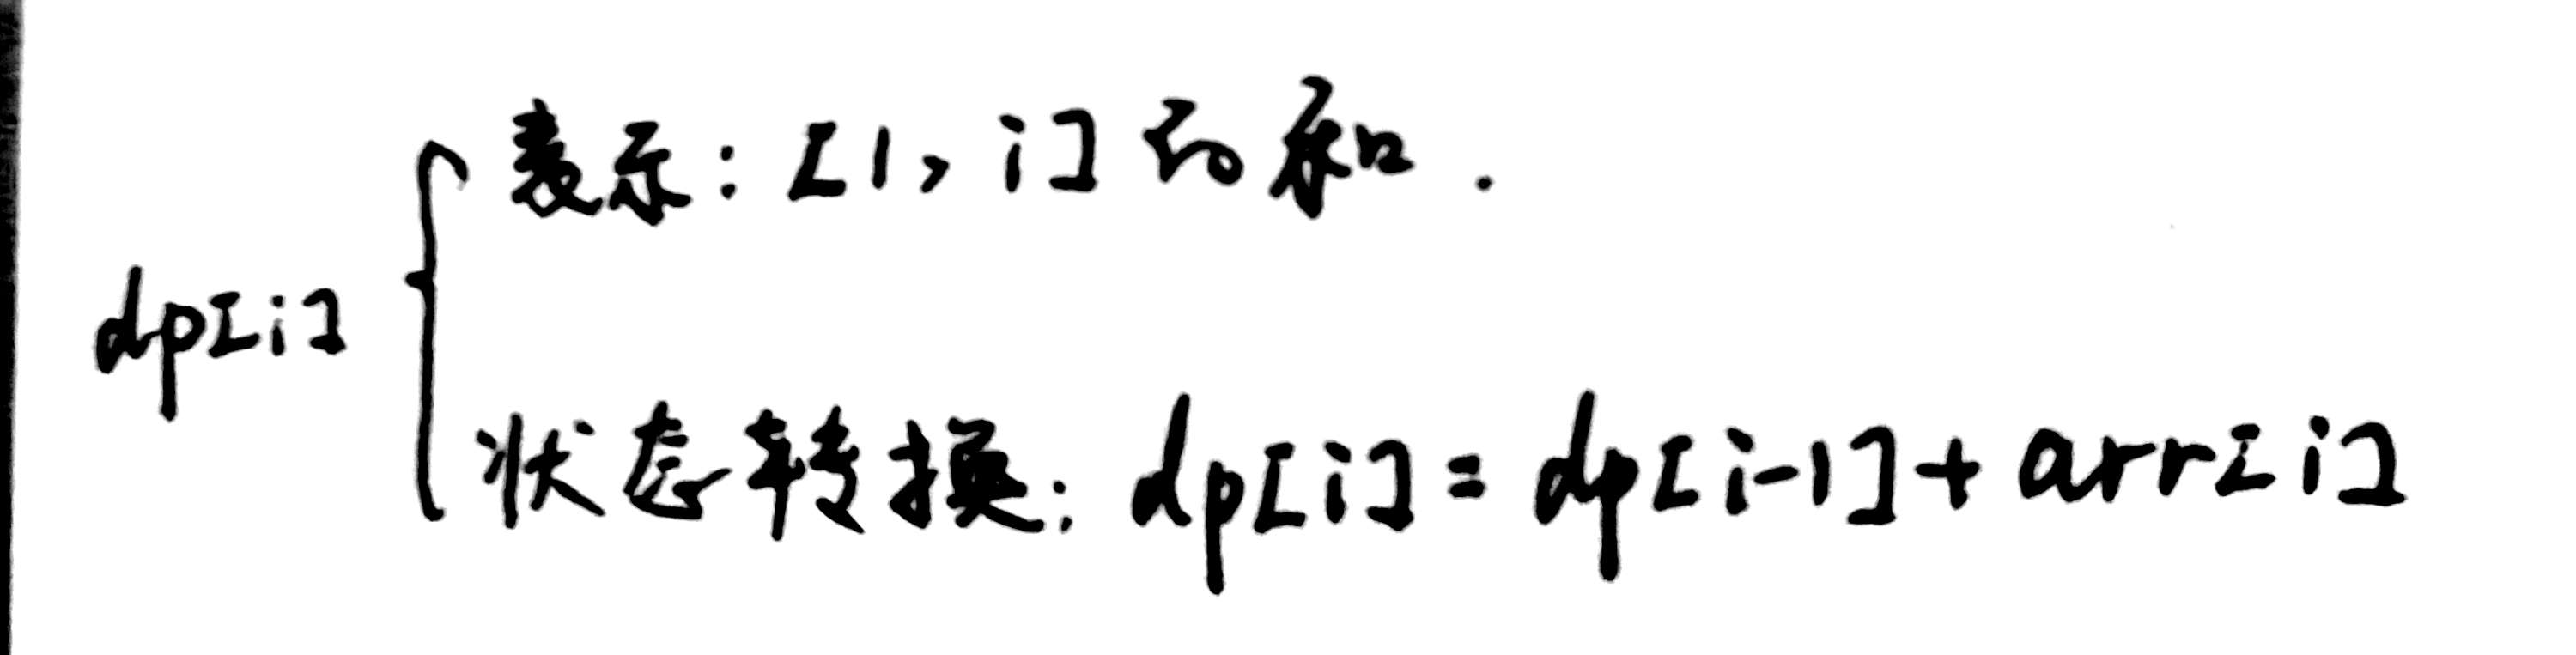 表示：[1, i] 的和.
dp[i]
状态转换：dp[i] = dp[i-1] + arr[i]